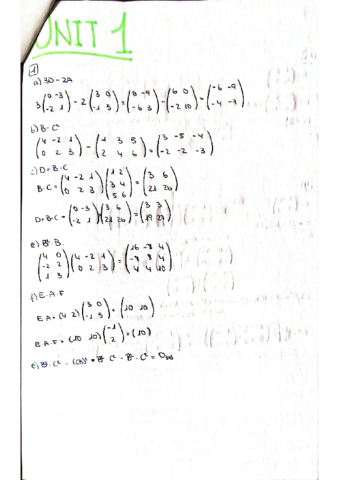 UNIT 1
1
a) 3D - 2A
3 (0 -3; -2 1) - 2 (3 0; -1 5) = (0 -9; -6 3) - (6 0; -2 10) = (-6 -9; -4 -7)
b) B - Cᵗ
(4 -2 1; 0 2 3) - (1 3 5; 2 4 6) = (3 -5 -4; -2 -2 -3)
c) D + B·C
B·C = (4 -2 1; 0 2 3) (1 2; 3 4; 5 6) = (3 6; 21 26)
D + B·C = (0 -3; -2 1) (3 6; 21 26) = (3 3; 19 27)
e) Bᵗ·B.
(4 0; -2 2; 1 3) (4 -2 1; 0 2 3) = (16 -8 4; -8 8 4; 4 4 10)
f) E·A·F
E·A = (4 2) (3 0; -1 5) = (10 10)
E·A·F = (10 10) (-1; 2) = (10)